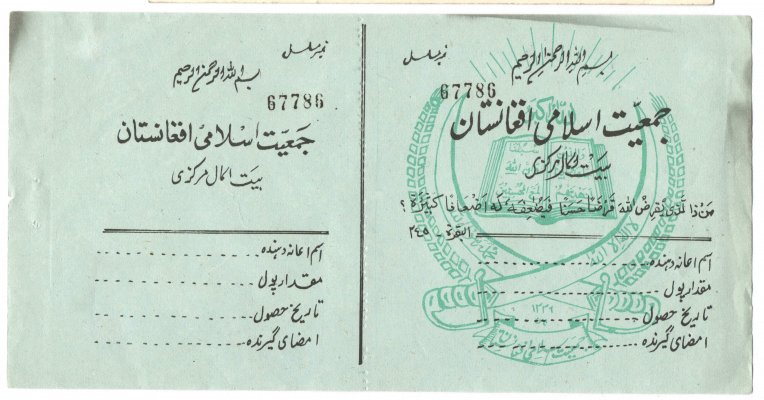 نمبر مسلسل
بسم الله الرحمن الرحیم
67786
جمعیت اسلامی افغانستان
بیت المال مرکزی
من ذا لذی یقرض الله قرضا حسنا فیضعفه له اضعافا کثیرة ؟
البقره - ۲۴۵
اسم اعانه دهنده
مقدار پول
تاریخ حصول
امضای گیرنده
الله اکبر
لا اله الا الله
۱۳۳۶
جمعیت اسلامی افغانستان
نمبر مسلسل
بسم الله الرحمن الرحیم
67786
جمعیت اسلامی افغانستان
بیت المال مرکزی
اسم اعانه دهنده
مقدار پول
تاریخ حصول
امضای گیرنده